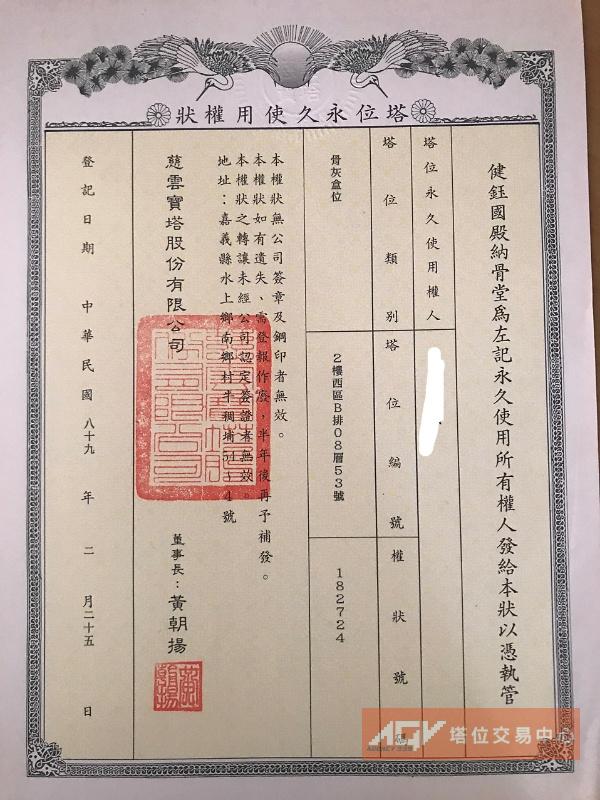 塔位永久使用權狀
健鈺國殿納骨堂為左記永久使用所有權人發給本狀以憑執管
塔位永久使用權人
塔位類別
塔位編號
權狀號碼
骨灰盒位
2樓西區B排08層53號
182724
本權狀無公司簽章及鋼印者無效。
本權狀如有遺失、需登報作廢，半年後再予補發。
本權狀之轉讓未經公司認定簽證者無效。
地址：嘉義縣水上鄉南鄉村半稠埔54-4號
慈雲寶塔股份有限公司
董事長：黃朝揚
登記日期 中華民國八十九年二月二十五日
AGV 塔位交易中心